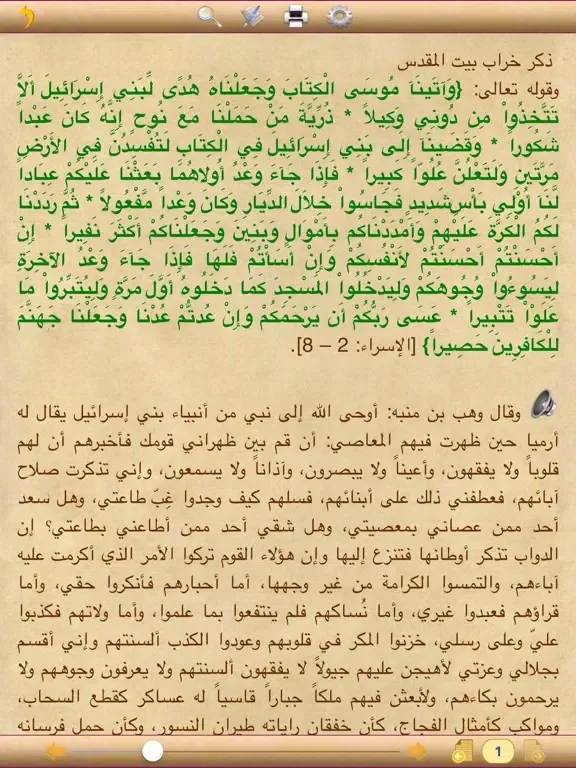 ذكر خراب بيت المقدس
وقوله تعالى: {وَآتَيْنَآ مُوسَى الْكِتَابَ وَجَعَلْنَاهُ هُدًى لِّبَنِي إِسْرَائِيلَ أَلاَّ
تَتَّخِذُواْ مِن دُونِي وَكِيلاً * ذُرِّيَّةَ مَنْ حَمَلْنَا مَعَ نُوحٍ إِنَّهُ كَانَ عَبْداً
شَكُوراً * وَقَضَيْنَا إِلَى بَنِي إِسْرَائِيلَ فِي الْكِتَابِ لَتُفْسِدُنَّ فِي الأَرْضِ
مَرَّتَيْنِ وَلَتَعْلُنَّ عُلُوّاً كَبِيراً * فَإِذَا جَآءَ وَعْدُ أُولاهُمَا بَعَثْنَا عَلَيْكُمْ عِبَاداً
لَّنَآ أُوْلِي بَأْسٍ شَدِيدٍ فَجَاسُواْ خِلاَلَ الدِّيَارِ وَكَانَ وَعْداً مَّفْعُولاً * ثُمَّ رَدَدْنَا
لَكُمُ الْكَرَّةَ عَلَيْهِمْ وَأَمْدَدْنَاكُم بِأَمْوَالٍ وَبَنِينَ وَجَعَلْنَاكُمْ أَكْثَرَ نَفِيراً * إِنْ
أَحْسَنْتُمْ أَحْسَنْتُمْ لأَنْفُسِكُمْ وَإِنْ أَسَأْتُمْ فَلَهَا فَإِذَا جَآءَ وَعْدُ الآخِرَةِ
لِيَسُوءُواْ وُجُوهَكُمْ وَلِيَدْخُلُواْ الْمَسْجِدَ كَمَا دَخَلُوهُ أَوَّلَ مَرَّةٍ وَلِيُتَبِّرُواْ مَا
عَلَوْاْ تَتْبِيراً * عَسَى رَبُّكُمْ أَن يَرْحَمَكُمْ وَإِنْ عُدتُّمْ عُدْنَا وَجَعَلْنَا جَهَنَّمَ
لِلْكَافِرِينَ حَصِيراً} [الإسراء: 2 – 8].
وقال وهب بن منبه: أوحى الله إلى نبي من أنبياء بني إسرائيل يقال له
أرميا حين ظهرت فيهم المعاصي: أن قم بين ظهراني قومك فأخبرهم أن لهم
قلوباً ولا يفقهون، وأعيناً ولا يبصرون، وآذاناً ولا يسمعون، وإني تذكرت صلاح
آبائهم، فعطفني ذلك على أبنائهم، فسلهم كيف وجدوا غِبّ طاعتي، وهل سعد
أحد ممن عصاني بمعصيتي، وهل شقي أحد ممن أطاعني بطاعتي؟ إن
الدواب تذكر أوطانها فتنزع إليها وإن هؤلاء القوم تركوا الأمر الذي أكرمت عليه
آباءهم، والتمسوا الكرامة من غير وجهها، أما أحبارهم فأنكروا حقي، وأما
قراؤهم فعبدوا غيري، وأما نُساكهم فلم ينتفعوا بما علموا، وأما ولاتهم فكذبوا
عليّ وعلى رسلي، خزنوا المكر في قلوبهم وعودوا الكذب ألسنتهم وإني أقسم
بجلالي وعزتي لأهيجن عليهم جيولاً لا يفقهون ألسنتهم ولا يعرفون وجوههم ولا
يرحمون بكاءهم، ولأبعثن فيهم ملكاً جباراً قاسياً له عساكر كقطع السحاب،
ومواكب كأمثال الفجاج، كأن خفقان راياته طيران النسور، وكأن حمل فرسانه
1